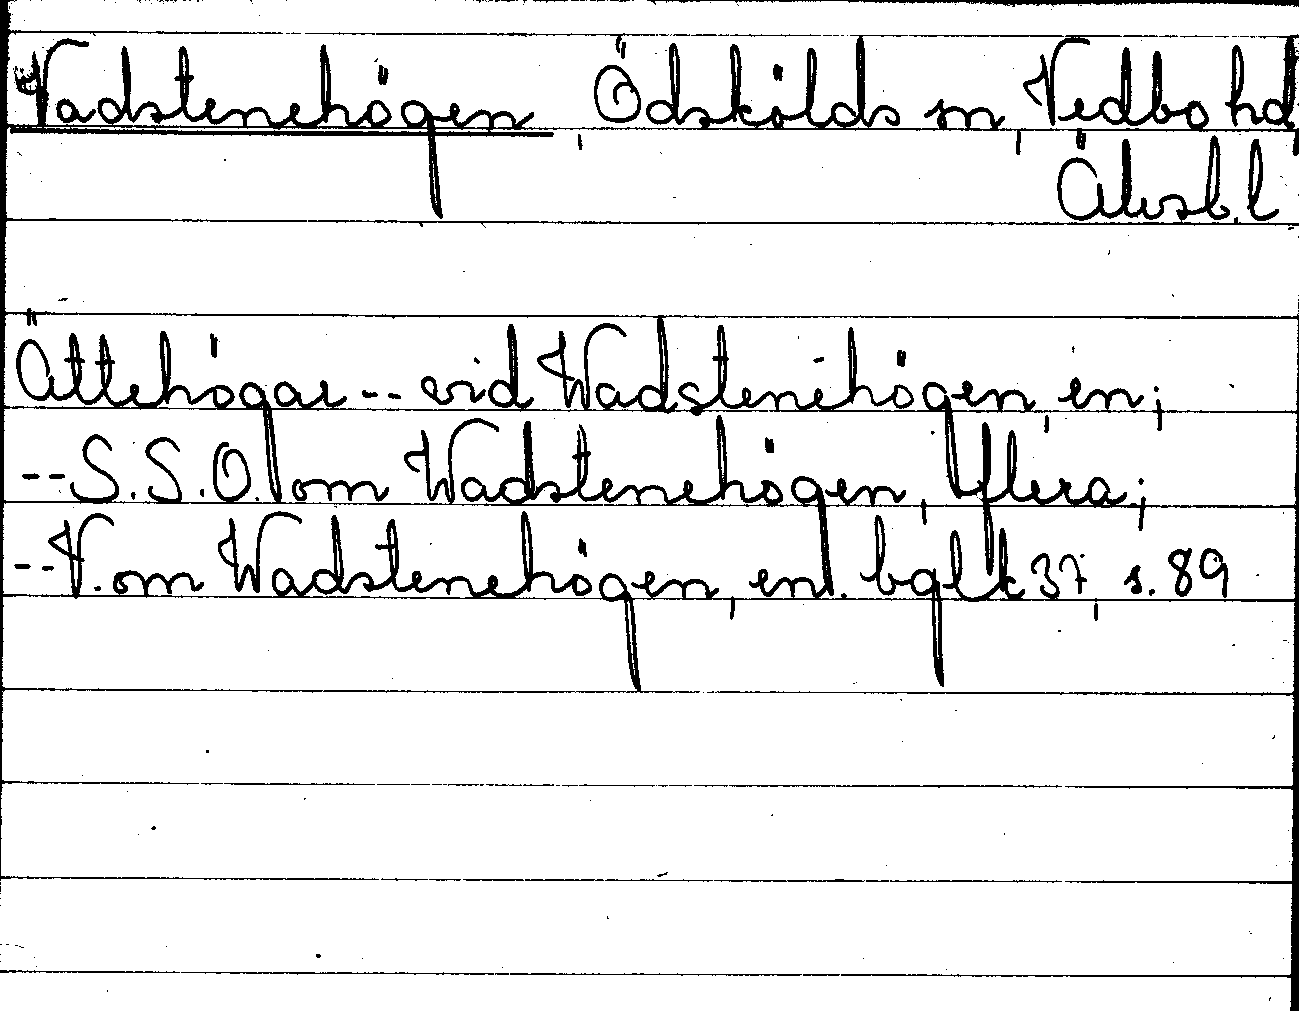 Vadstenehögen, Ödskölds sn, Vedbo hd,
Älvsb.l
Ättehögar -- vid Wadstenehögen, en;
-- S.S.O. om Wadstenehögen, flera;
-- V. om Wadstenehögen, en. bglk 37, s. 89